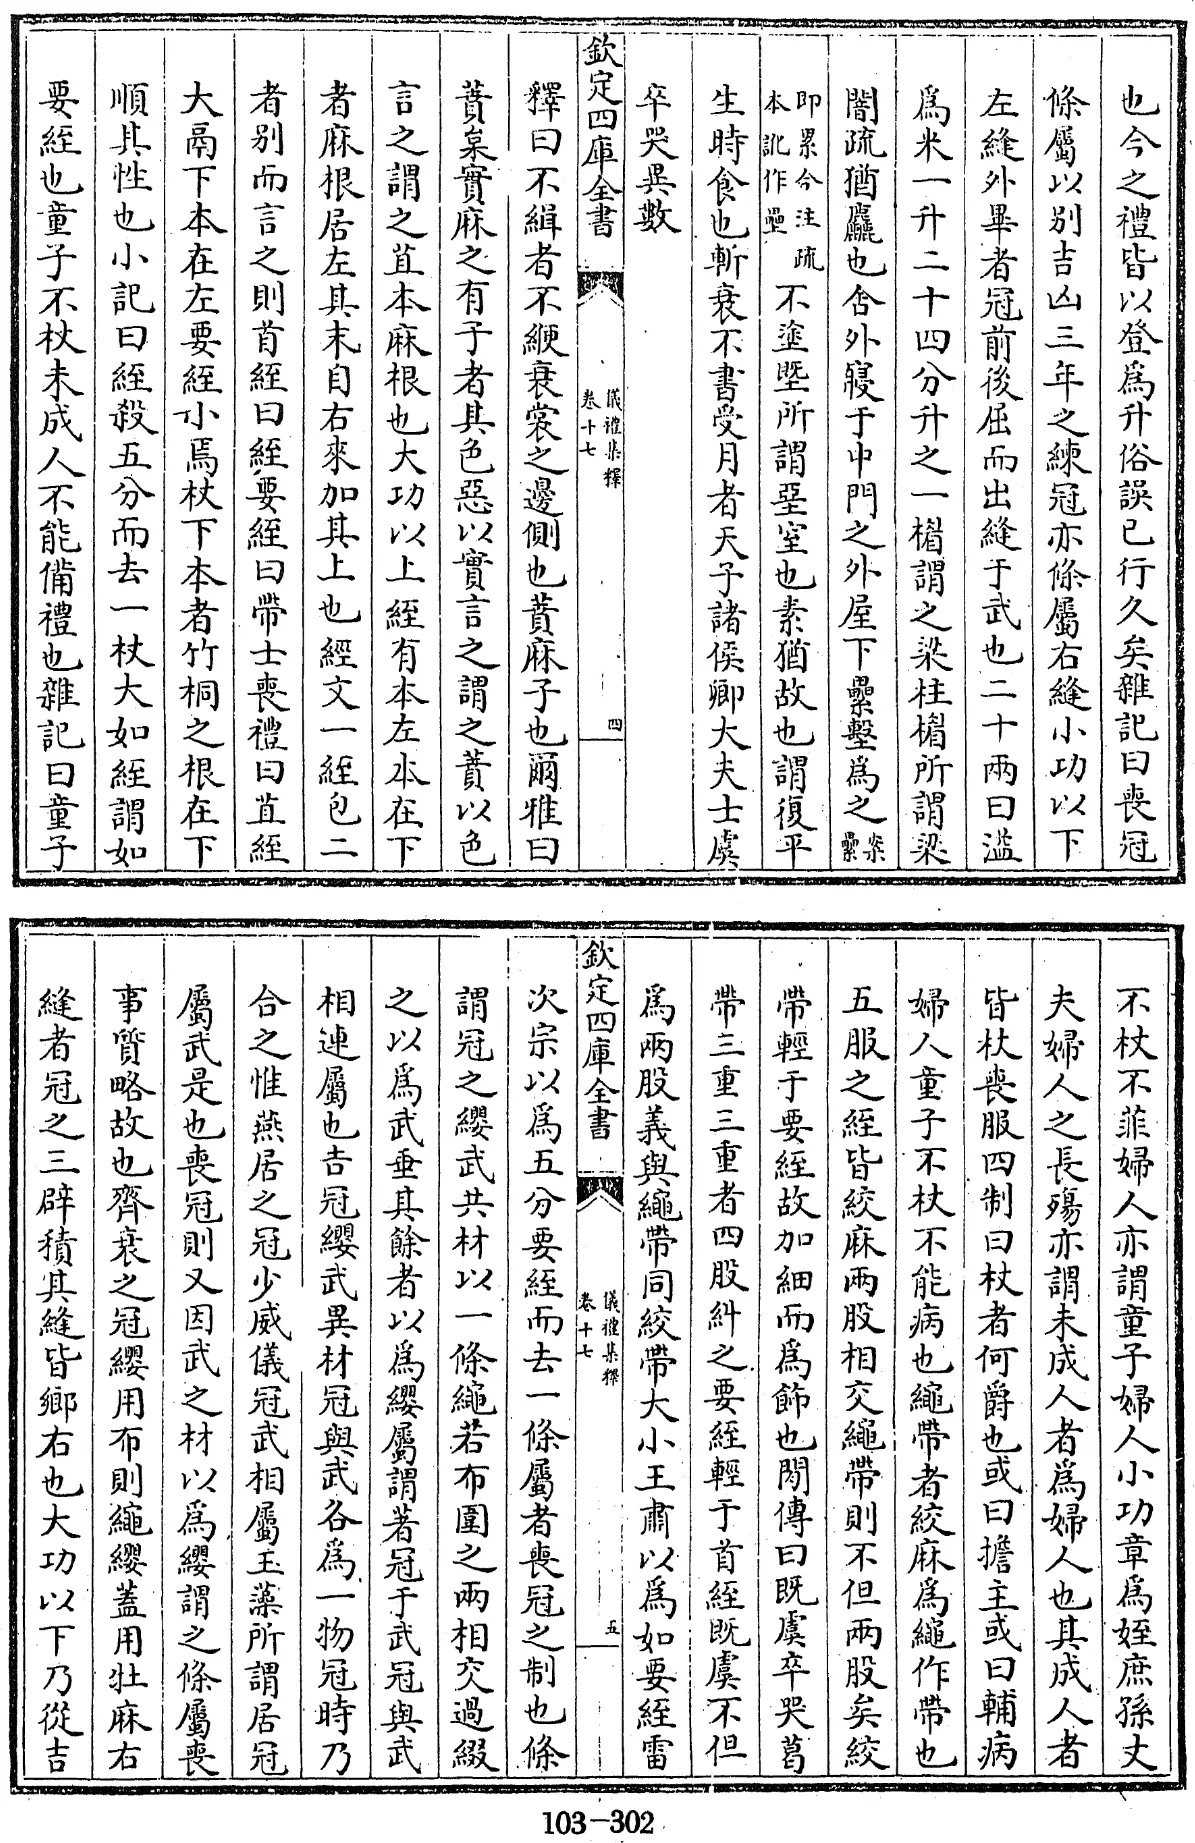 也今之禮皆以登爲升俗誤已行久矣雜記曰喪冠
條屬以别吉凶三年之練冠亦條屬右縫小功以下
左縫外畢者冠前後屈而出縫于武也二十兩曰溢
爲米一升二十四分升之一楣謂之梁柱楣所謂梁
闇疏猶麤也舍外寢于中門之外屋下壘墼爲之案壘
即累今注疏本訛作壘不塗塈所謂堊室也素猶故也謂復平
生時食也斬衰不書受月者天子諸侯卿大夫士虞
卒哭異數
欽定四庫全書
儀禮集釋
卷十七
四
釋曰不緝者不緶衰裳之邊側也蕡麻子也爾雅曰
蕡枲實麻之有子者其色惡以實言之謂之蕡以色
言之謂之苴本麻根也大功以上絰有本左本在下
者麻根居左其末自右來加其上也經文一絰包二
者别而言之則首絰曰絰要絰曰帶士喪禮曰苴絰
大鬲下本在左要絰小焉杖下本者竹桐之根在下
順其性也小記曰絰殺五分而去一杖大如絰謂如
要絰也童子不杖未成人不能備禮也雜記曰童子
不杖不菲婦人亦謂童子婦人小功章爲姪庶孫丈
夫婦人之長殤亦謂未成人者爲婦人也其成人者
皆杖喪服四制曰杖者何爵也或曰擔主或曰輔病
婦人童子不杖不能病也繩帶者絞麻爲繩作帶也
五服之絰皆絞麻兩股相交繩帶則不但兩股矣絞
帶輕于要絰故加細而爲飾也閒傳曰既虞卒哭葛
帶三重三重者四股糾之要絰輕于首絰既虞不但
爲兩股義與繩帶同絞帶大小王肅以爲如要絰雷
欽定四庫全書
儀禮集釋
卷十七
五
次宗以爲五分要絰而去一條屬者喪冠之制也條
謂冠之纓武共材以一條繩若布圍之兩相交過綴
之以爲武垂其餘者以爲纓屬謂著冠于武冠與武
相連屬也吉冠纓武異材冠與武各爲一物冠時乃
合之惟燕居之冠少威儀冠武相屬玉藻所謂居冠
屬武是也喪冠則又因武之材以爲纓謂之條屬喪
事質略故也齊衰之冠纓用布則繩纓蓋用牡麻右
縫者冠之三辟積其縫皆鄉右也大功以下乃從吉
103-302